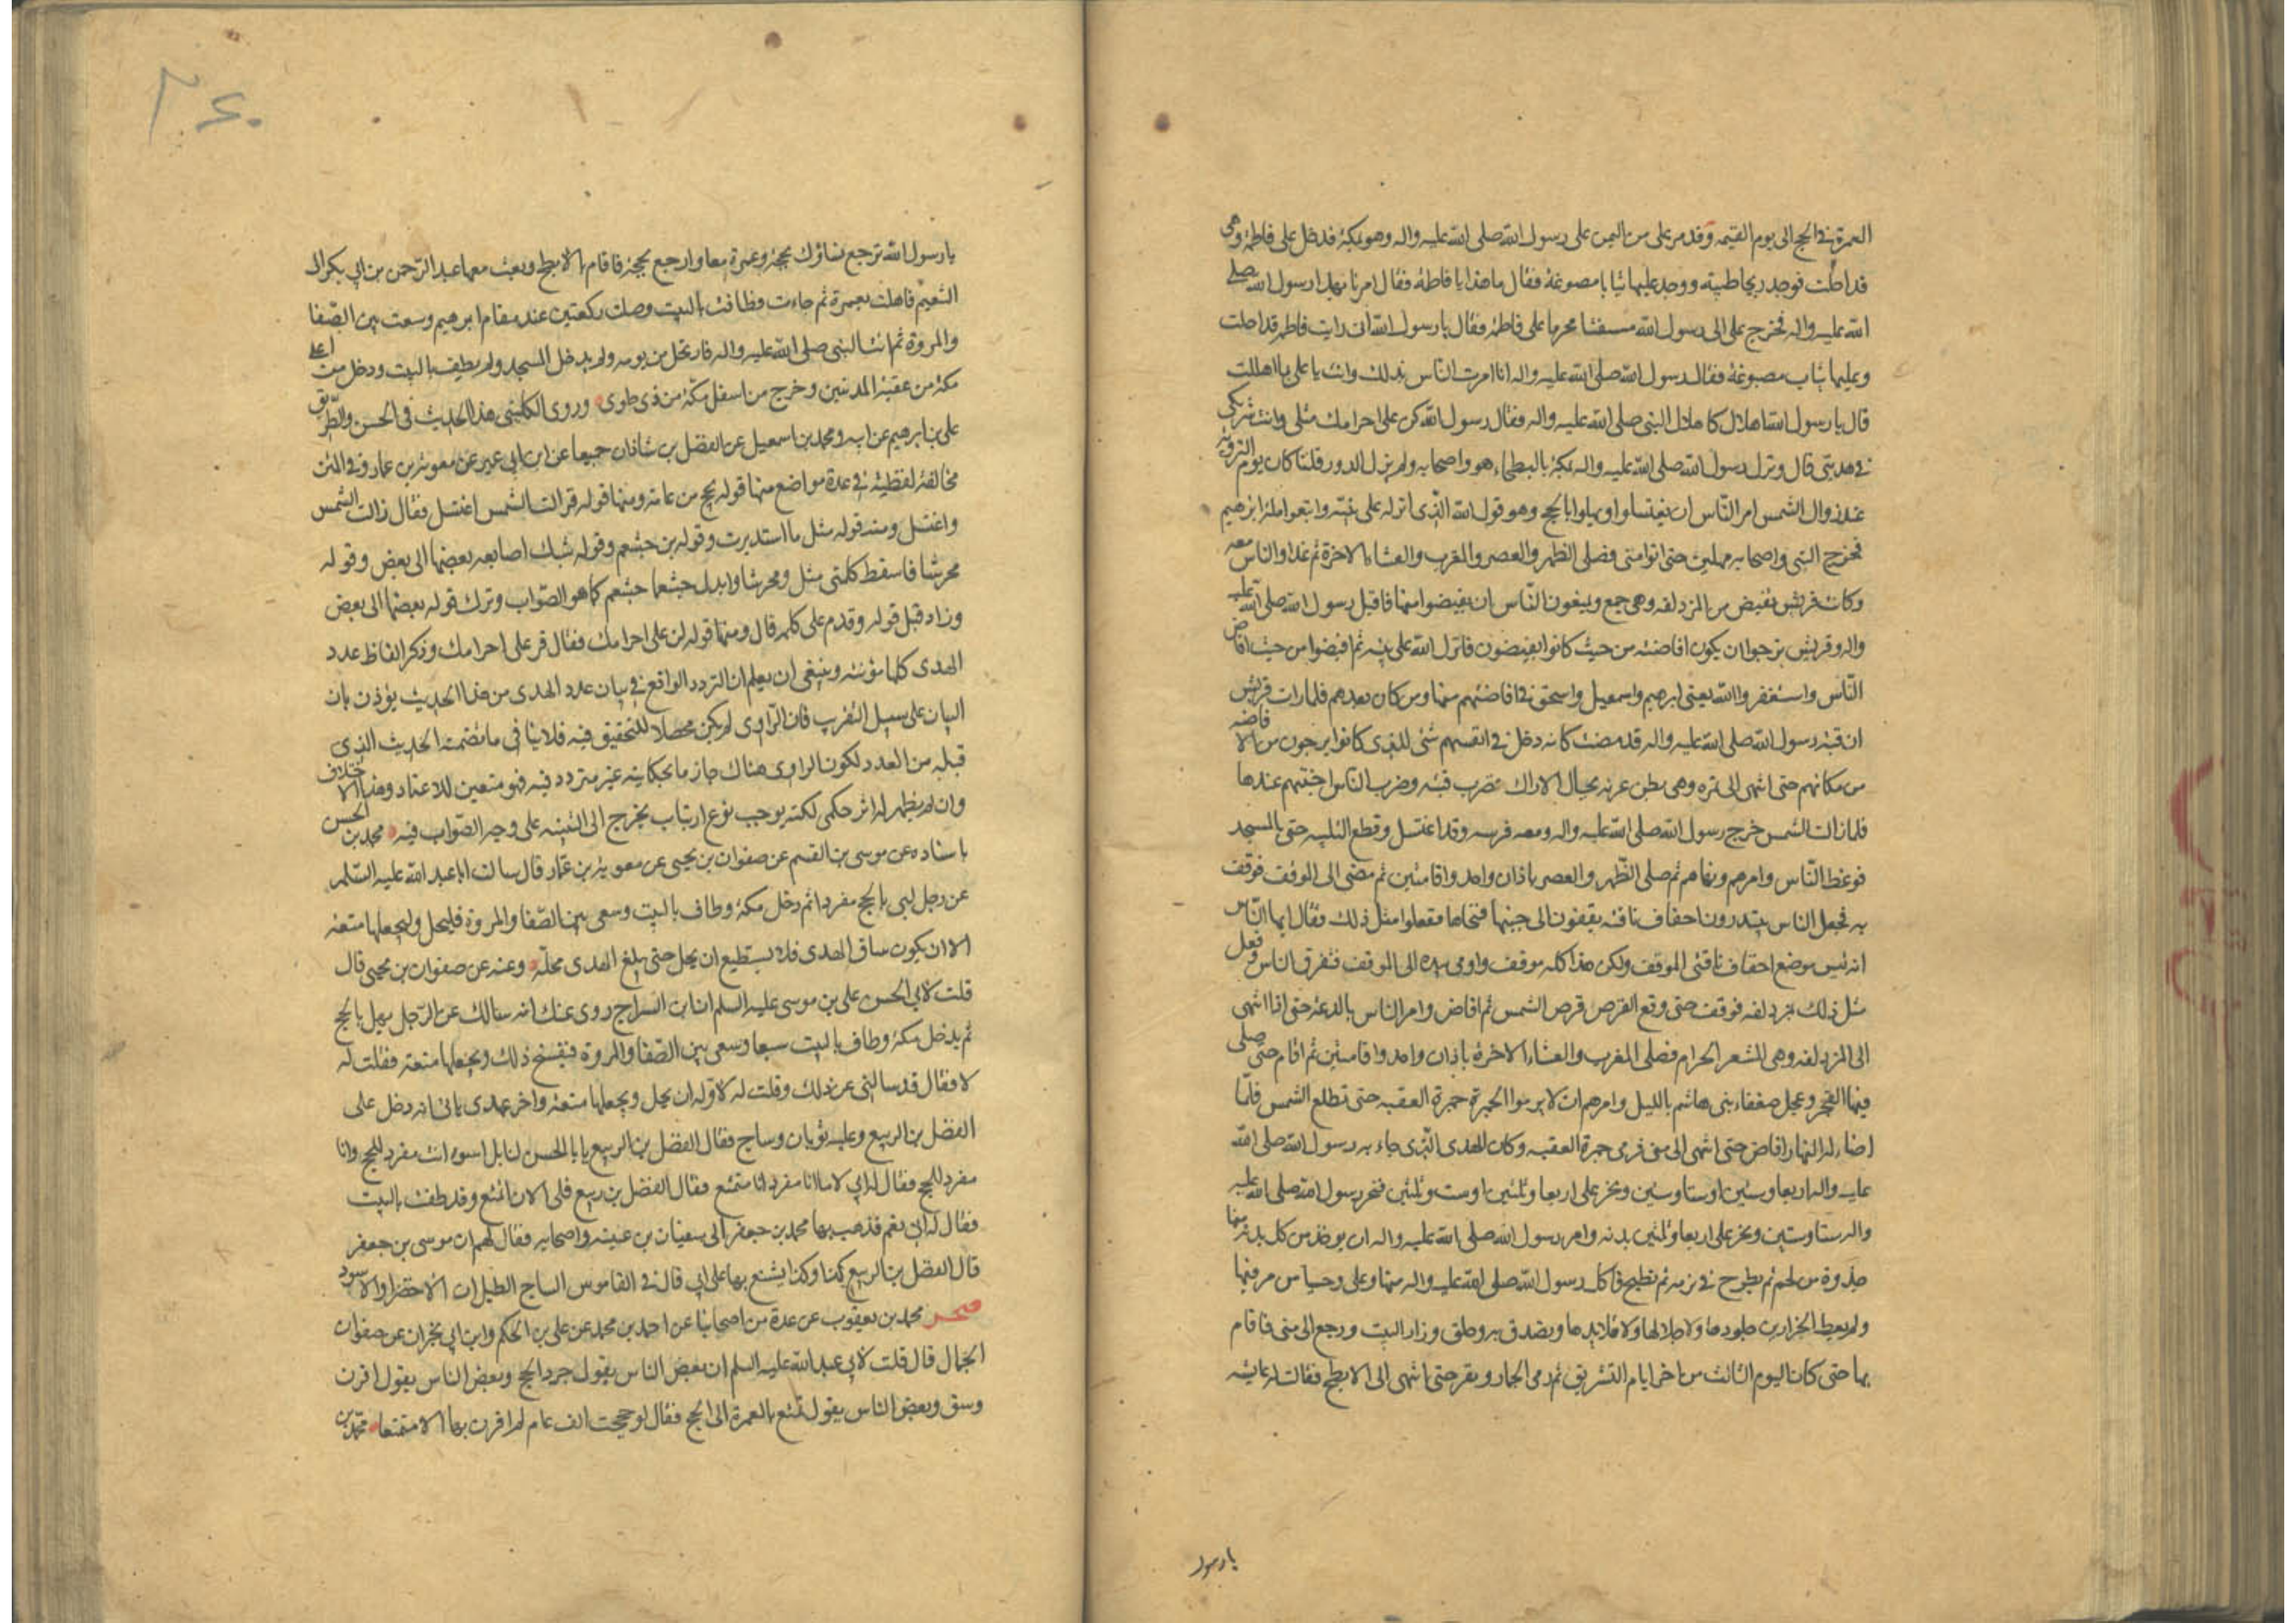 العمرة في الحج الى يوم القيمه وقدم على من اليمن على رسول الله صلى الله عليه واله وهو بمكة فدخل على فاطمة وهي
قد احلت فوجد ريحا طيبة ووجد عليها ثيابا مصبوغة فقال ما هذا يا فاطمة فقال امرنا بهذا رسول الله صلى
الله عليه واله فخرج على الى رسول الله مستفتيا محرشا على فاطمة فقال يا رسول الله اني رايت فاطمه قد احلت
وعليها ثياب مصبوغة فقال رسول الله صلى الله عليه واله انا امرت الناس بذلك وانت يا علي بما اهللت
قال يا رسول الله اهلال كاهلال النبي صلى الله عليه واله فقال رسول الله كن على احرامك مثلي وانت شريكي
في هديي قال ونزل رسول الله صلى الله عليه واله بمكة بالبطحاء هو واصحابه ولم ينزل الدور فلما كان يوم التروية
عند زوال الشمس امر الناس ان يغتسلوا ويهلوا بالحج وهو قول الله الذي انزله على نبيه واتبعوا ملة ابرهيم
فخرج النبي واصحابه مهلين حتى اتوا منى فصلى الظهر والعصر والمغرب والعشاء الاخرة ثم غدا والناس معه
وكانت قريش تفيض من المزدلفه وهي جمع ويمنعون الناس ان يفيضوا منها فاقبل رسول الله صلى الله عليه
واله وقريش ترجوا ان يكون افاضته من حيث كانوا يفيضون فانزل الله على نبيه ثم افيضوا من حيث افاض
الناس واستغفروا الله يعني ابرهيم واسمعيل واسحق في افاضتهم منها ومن كان بعدهم فلما رات قريش
ان قبة رسول الله صلى الله عليه واله قد مضت كانه دخل في انفسهم شئ للذي كانوا يرجون من الافاضه
من مكانهم حتى انتهى الى نمره وهي بطن عرنه بحيال الاراك فضرب قبته وضرب الناس اخبيتهم عندها
فلما زالت الشمس خرج رسول الله صلى الله عليه واله ومعه فرسه وقد اغتسل وقطع التلبيه حتى بالمسجد
فوعظ الناس وامرهم ونهاهم ثم صلى الظهر والعصر باذان واحد واقامتين ثم مضى الى الموقف فوقف
به فجعل الناس يبتدرون اخفاف ناقته يقفون الى جنبها فنحاها ففعلوا مثل ذلك فقال ايها الناس
انه ليس موضع اخفاف ناقتي الموقف ولكن هذا كله موقف واومى بيده الى الموقف فتفرق الناس وفعل
مثل ذلك بمزدلفه فوقف حتى وقع القرص قرص الشمس ثم افاض وامر الناس بالدعة حتى اذا انتهى
الى المزدلفه وهي المشعر الحرام فصلى المغرب والعشاء الاخرة باذان واحد واقامتين ثم اقام حتى صلى
فيها الفجر وعجل ضعفاء بني هاشم بالليل وامرهم ان لا يرموا الجمرة جمرة العقبه حتى تطلع الشمس فلما
اضاء له النهار افاض حتى انتهى الى منى فرمى جمرة العقبه وكان الهدي الذي جاء به رسول الله صلى الله
عليه واله اربعا وستين او ستا وستين ونحر على اربعا وثلثين او ست وثلثين فنحر رسول الله صلى الله عليه
واله ستا وستين ونحر على اربعا وثلثين بدنه وامر رسول الله صلى الله عليه واله ان يوخذ من كل بدنة منها
جذوة من لحم ثم يطرح في برمه ثم تطبخ فاكل رسول الله صلى الله عليه واله منها وعلى وحسيا من مرقها
ولم يعط الجزارين جلودها ولا جلالها ولا قلايدها وتصدق به وحلق وزار البيت ورجع الى منى فاقام
بها حتى كان اليوم الثالث من اخر ايام التشريق ثم رمى الجمار ونفر حتى انتهى الى الابطح فقالت له عايشه
يا رسول
٢٤٠
يا رسول الله ترجع نساؤك بحجة وعمرة معا وارجع بحجة فاقام بالابطح وبعث معها عبد الرحمن بن ابي بكر الى
التنعيم فاهلت بعمرة ثم جاءت وطافت بالبيت وصلت ركعتين عند مقام ابرهيم وسعت بين الصفا
والمروة ثم اتت النبي صلى الله عليه واله فارتحل من يومه ولم يدخل المسجد ولم يطف بالبيت ودخل من اعلى
مكة من عقبة المدنيين وخرج من اسفل مكة من ذي طوى وروى الكليني هذا الحديث في الحسن والطريق
على بن ابرهيم عن ابيه ومحمد بن اسمعيل عن الفضل بن شاذان جميعا عن ابن ابي عمير عن معوية بن عمار وفي المتن
مخالفة لفظية في عدة مواضع منها قوله بحج من عامه ومنها قوله فزالت الشمس اغتسل فقال زالت الشمس
واغتسل ومنه قوله مثل ما استدبرت وقوله بن جشعم وقوله شبك اصابعه بعضها الى بعض وقوله
محرشا فاسقط كلمتي مثل ومحرشا وابدل جشعما جشعم كما هو الصواب وترك قوله بعضها الى بعض
وزاد قبل قوله وقدم على كلمه قال ومنها قوله ان على احرامك فقال قر على احرامك وذكر الفاظ عدد
الهدى كلها مؤنثه وينبغي ان يعلم ان التردد الواقع في بيان عدد الهدى من هذا الحديث يؤذن بان
البيان على سبيل التقريب فان الراوي لم يكن محصلا للتحقيق فيه فلا ينافي ما تضمنه الحديث الذي
قبله من العدد لكون الراوي هناك جازما بحكايته غير متردد فيه فهو متعين للاعتماد وهذا الاختلاف
وان لم يظهر له اثر حكمي لكنه يوجب نوع ارتياب يخرج الى التنبيه على وجه الصواب فيه محمد بن الحسن
باسناده عن موسى بن القسم عن صفوان بن يحيى عن معوية بن عمار قال سالت ابا عبد الله عليه السلم
عن رجل لبى بالحج مفردا ثم دخل مكة وطاف بالبيت وسعى بين الصفا والمروة فليحل وليجعلها متعة
الا ان يكون ساق الهدى فلا يستطيع ان يحل حتى يبلغ الهدى محله وعنه عن صفوان بن يحيى قال
قلت لابي الحسن على بن موسى عليه السلم ان ابن السراج روى عنك انه سالك عن الرجل يهل بالحج
ثم يدخل مكة وطاف بالبيت سبعا وسعى بين الصفا والمروة فيفسخ ذلك ويجعلها متعة فقلت له
لا فقال قد سالني عن ذلك وقلت له لا وله ان يحل ويجعلها متعة واخر عهدي بابي انه دخل على
الفضل بن الربيع وعليه ثوبان وساج فقال الفضل بن الربيع يا با الحسن لنا بك اسوه انت مفرد للحج وانا
مفرد للحج فقال له ابي لا ما انا مفرد انا متمتع فقال الفضل بن ربيع فلى الان اتمتع وقد طفت بالبيت
فقال له ابي نعم فذهب بها محمد بن جعفر الى سفيان بن عيينه واصحابه فقال لهم ان موسى بن جعفر
قال الفضل بن الربيع كذا وكذا يشنع بها على ابي قال في القاموس الساج الطيلسان الاخضر او الاسود
محمد بن يعقوب عن عدة من اصحابنا عن احمد بن محمد عن على بن الحكم وابن ابي نجران عن صفوان
الجمال قال قلت لابي عبد الله عليه السلم ان بعض الناس يقول جرد الحج وبعض الناس يقول اقرن
وسق وبعض الناس يقول تمتع بالعمرة الى الحج فقال لو حججت الف عام لم اقرن بها الا متمتعا محمد بن